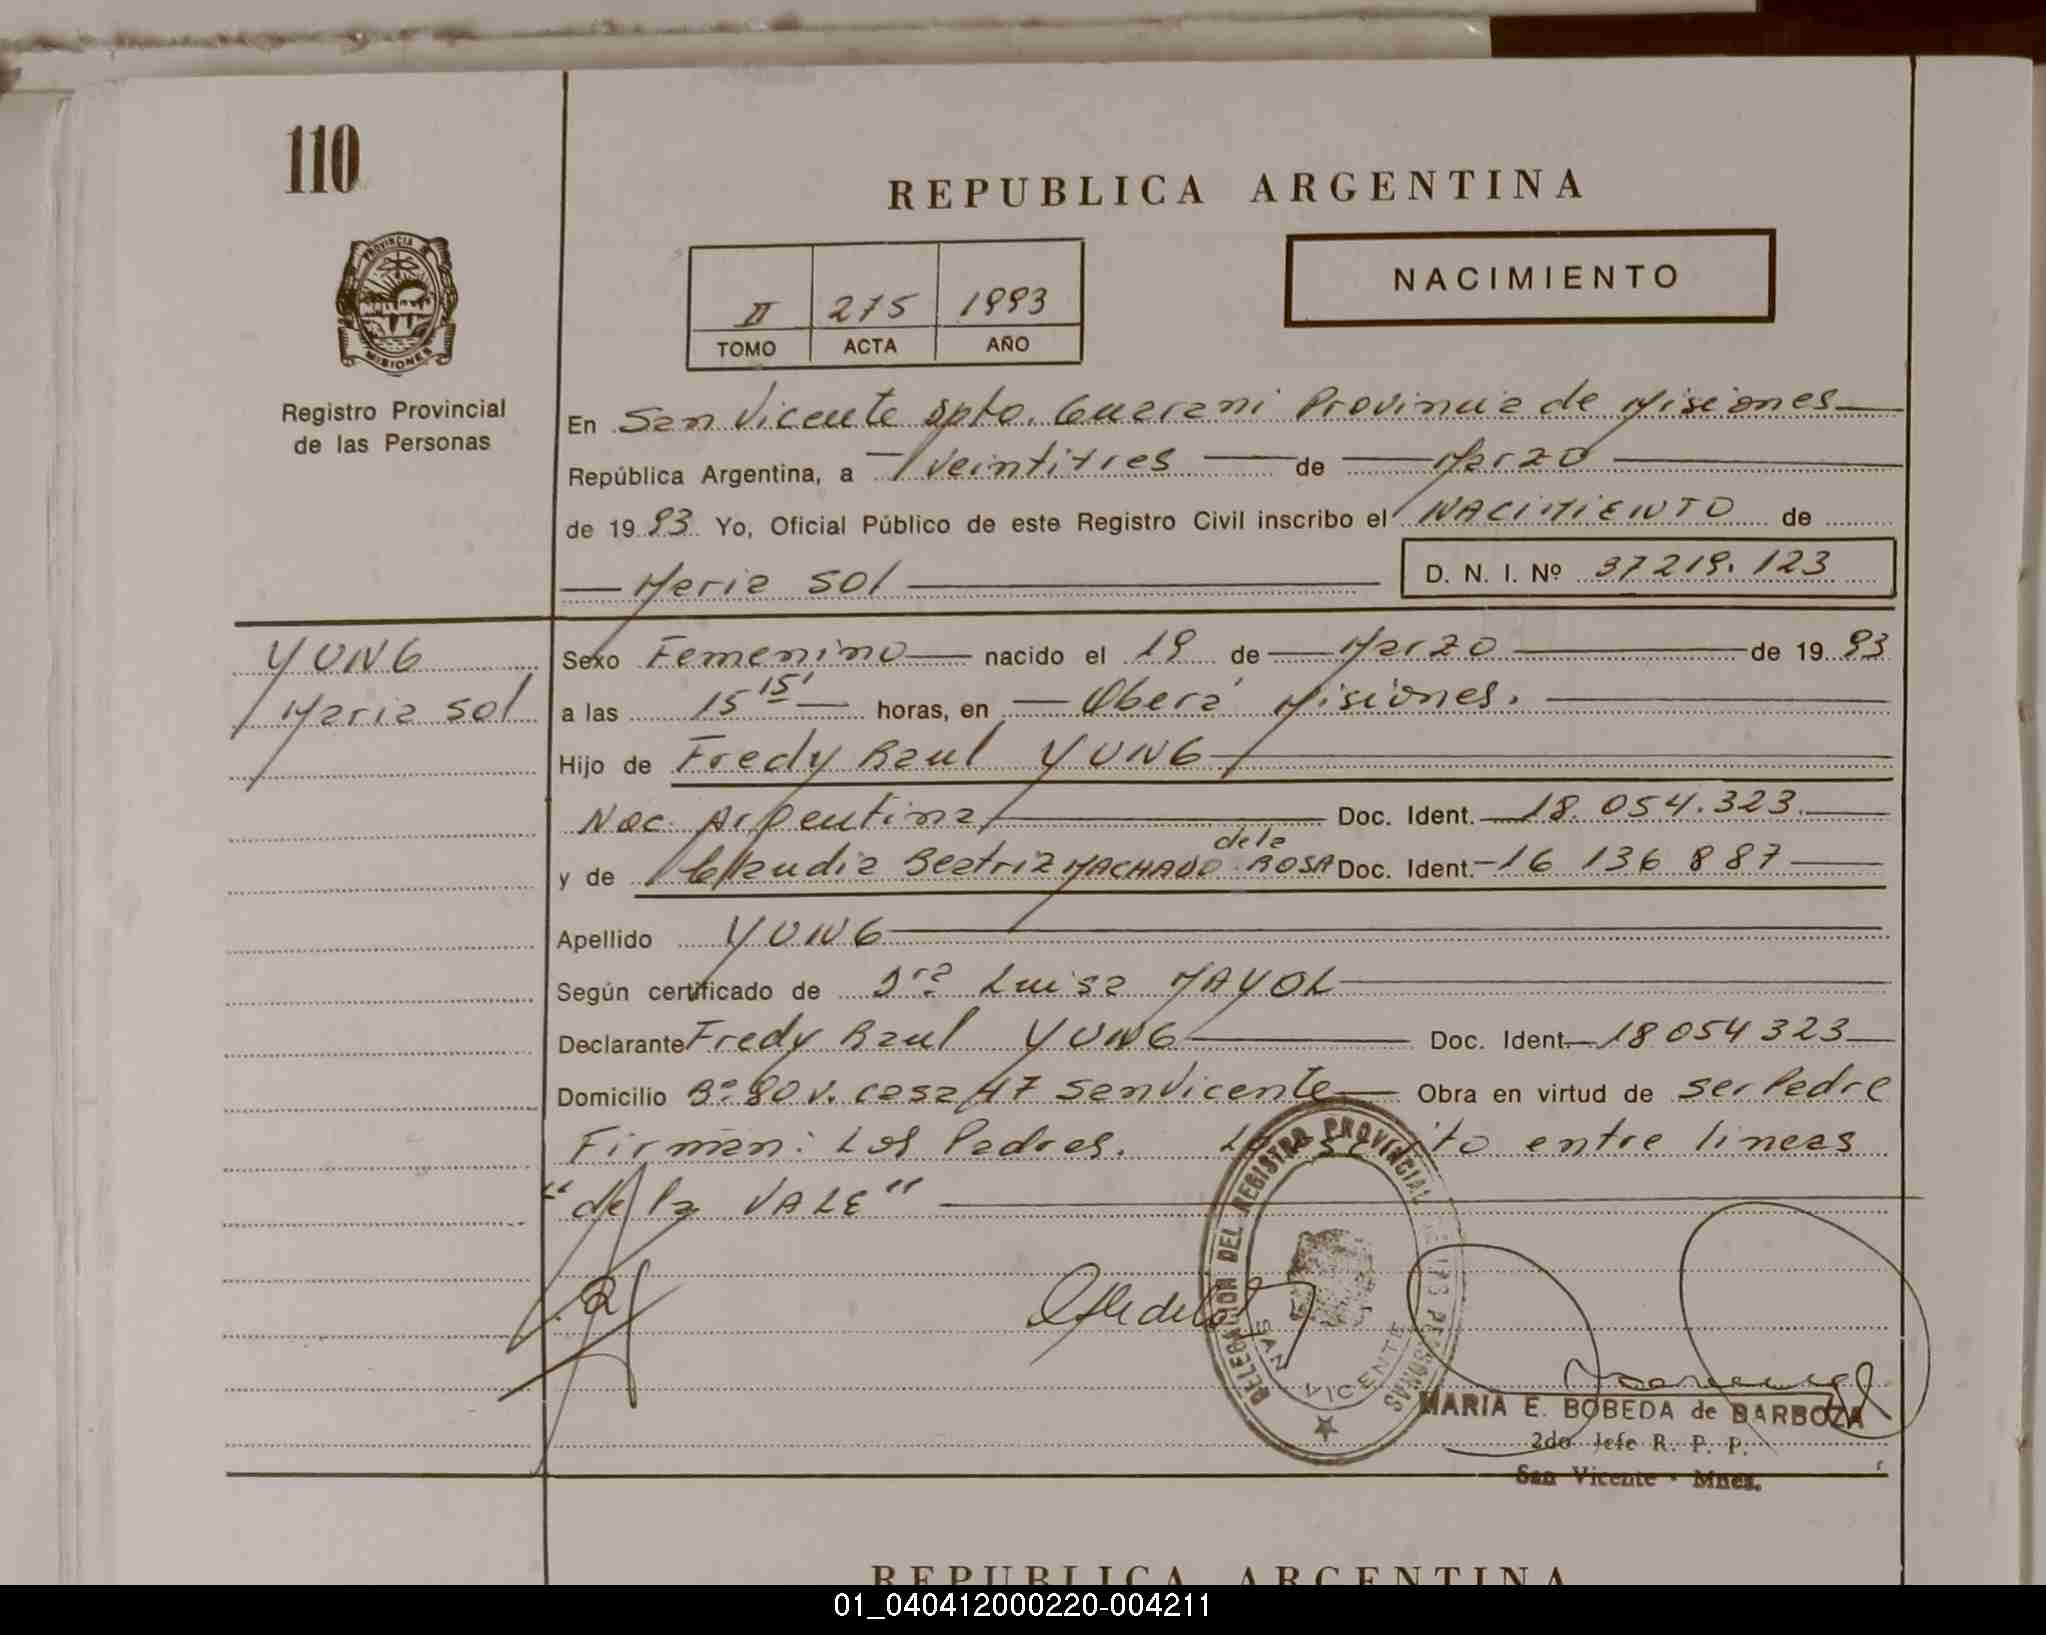 110
REPUBLICA ARGENTINA
PROVINCIA DE
MISIONES
Registro Provincial
de las Personas
II 275 1993
TOMO ACTA AÑO
NACIMIENTO
En San Vicente Dpto. Guarani Provincia de Misiones
República Argentina, a veintitres de Marzo
de 1993 Yo, Oficial Público de este Registro Civil inscribo el NACIMIENTO de
Maria Sol D. N. I. Nº 37219.123
YUNG
Maria Sol
Sexo Femenino nacido el 19 de Marzo de 1993
a las 15 15' horas, en Oberá Misiones.
Hijo de Fredy Raul YUNG
Nac. Argentina Doc. Ident. 18.054.323.
y de Claudia Beatriz MACHADO de la ROSA Doc. Ident. 16 136 887
Apellido YUNG
Según certificado de Dra Luisa MAYOL
Declarante Fredy Raul YUNG Doc. Ident. 18 054 323
Domicilio Bº 80 v. casa 47 San Vicente Obra en virtud de ser Padre
Firman: Los Padres. Lo escrito entre lineas
"de la VALE"
DELEGACION DEL REGISTRO PROVINCIAL DE LAS PERSONAS
SAN VICENTE
MARIA E. BOBEDA de BARBOZA
2do Jefe R. P. P.
San Vicente - Mnes.
REPUBLICA ARGENTINA
01_040412000220-004211